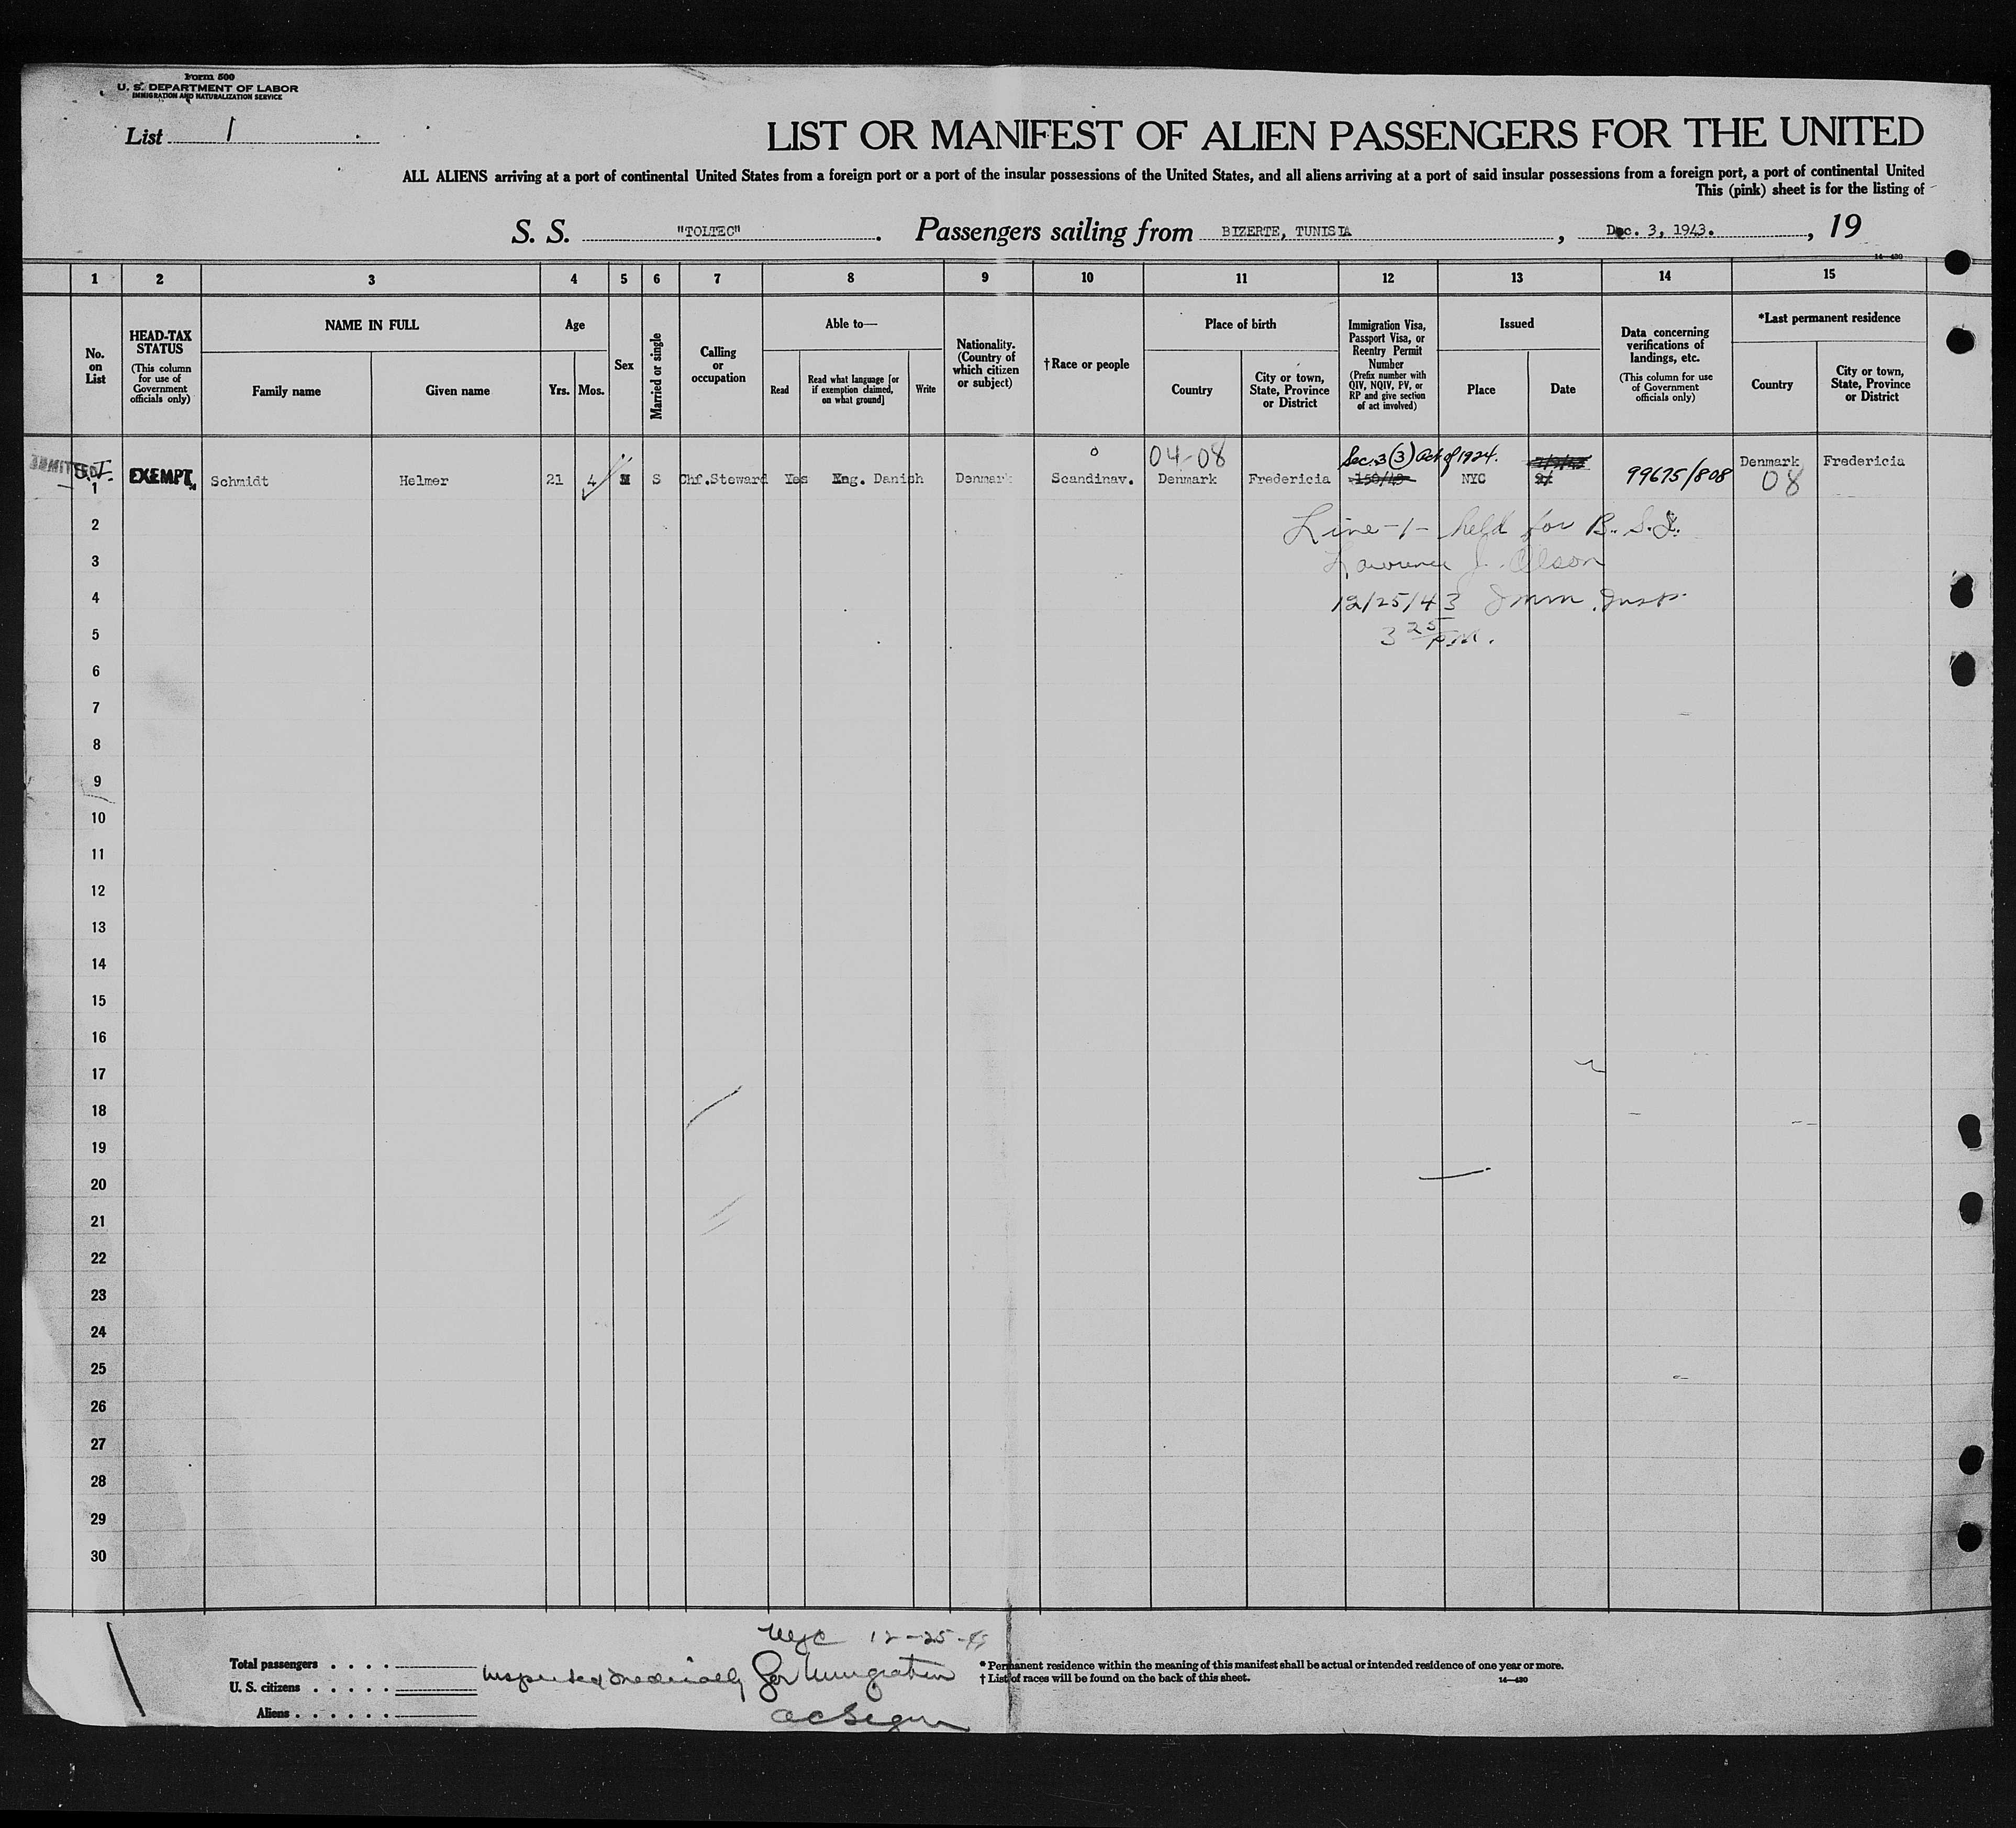 Form 500
U. S. DEPARTMENT OF LABOR
IMMIGRATION AND NATURALIZATION SERVICE
List 1
LIST OR MANIFEST OF ALIEN PASSENGERS FOR THE UNITED
ALL ALIENS arriving at a port of continental United States from a foreign port or a port of the insular possessions of the United States, and all aliens arriving at a port of said insular possessions from a foreign port, a port of continental United
This (pink) sheet is for the listing of
S. S. "TOLTEC". Passengers sailing from BIZERTE, TUNISIA, Dec. 3, 1943., 19
14—430
1 2 3 4 5 6 7 8 9 10 11 12 13 14 15
No. on List
HEAD-TAX STATUS (This column for use of Government officials only)
NAME IN FULL
Family name
Given name
Age
Yrs. Mos.
Sex
Married or single
Calling or occupation
Able to—
Read
Read what language [or if exemption claimed, on what ground]
Write
Nationality. (Country of which citizen or subject)
†Race or people
Place of birth
Country
City or town, State, Province or District
Immigration Visa, Passport Visa, or Reentry Permit Number (Prefix number with QIV, NQIV, PV, or RP and give section of act involved)
Issued
Place
Date
Data concerning verifications of landings, etc. (This column for use of Government officials only)
*Last permanent residence
Country
City or town, State, Province or District
ADMITTED
04-08 Sec. 3 (3) Act of 1924.
1 EXEMPT Schmidt Helmer 21 4 M S Chf.Steward Yes Eng. Danish Denmark Scandinav. Denmark Fredericia NYC 99675/808 Denmark 08 Fredericia
2
Line -1- held for B.S.I.
3
Lawrence J. Olson
4
12/25/43 Imm. Insp.
5
3 25 P.M.
6
7
8
9
10
11
12
13
14
15
16
17
18
19
20
21
22
23
24
25
26
27
28
29
30
NYC 12-25-43
Total passengers
Inspected medically for Immigration
U. S. citizens
Aliens
* Permanent residence within the meaning of this manifest shall be actual or intended residence of one year or more.
† List of races will be found on the back of this sheet.
14—430